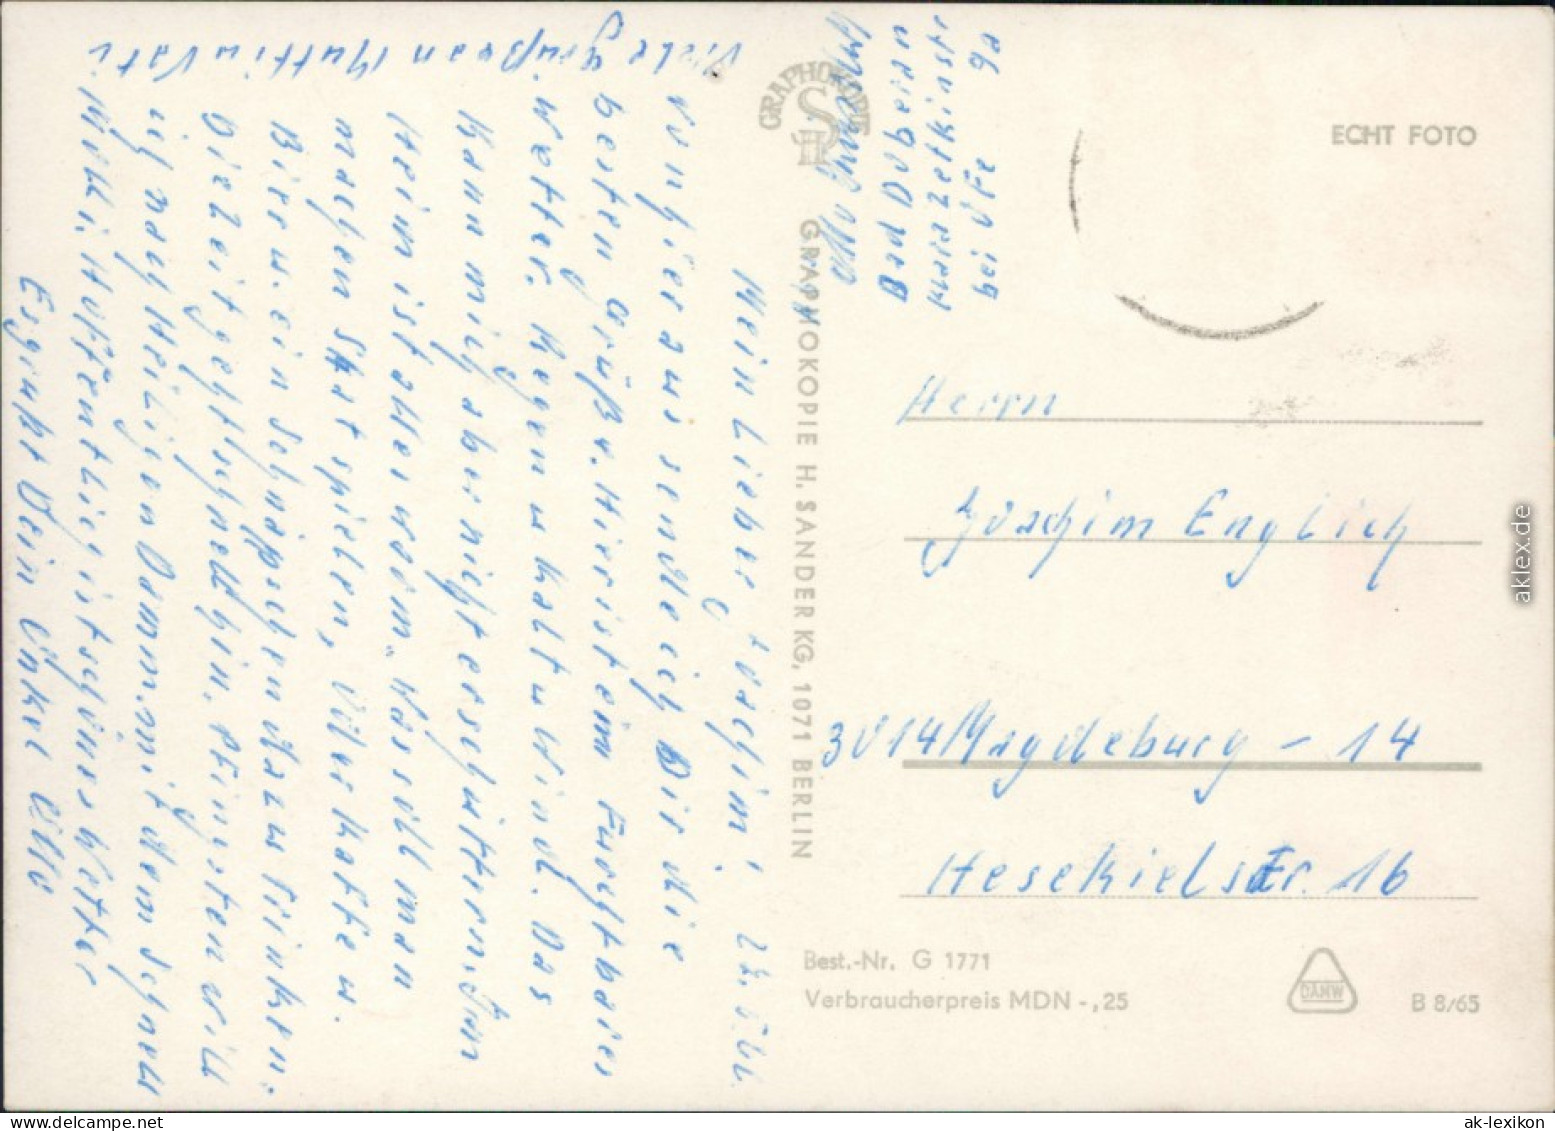 Viele Grüße an Mutti u Vati
Mein Lieber Joachim! 22.5.66.
von hier aus sende ich Dir die
besten Grüße. Hier ist ein Furchtbares
Wetter. Regen u kalt u Wind. Das
kann mich aber nicht erschüttern. Im
Heim ist alles warm. Was soll man
machen Skat spielen, oder Kaffe u.
Bier u. ein Schnäpschen dazu trinken.
Die Zeit geht schnell hin. Pfingsten will
ich nach Heiligen Damm. mit dem Schnell
Molli, Hoffentlich ist schönes Wetter
Es grüßt Dein Onkel Otto
Otto
Bad Doberan
Klara Zetkinstr
bei 9a
GRAPHOKOPIE
HS
GRAPHOKOPIE H. SANDER KG, 1071 BERLIN
ECHT FOTO
Herrn
Joachim Englich
3014 Magdeburg - 14
Hesekielstr. 16
Best.-Nr. G 1771
Verbraucherpreis MDN -,25
DAMW
B 8/65
aklex.de
ak-lexikon